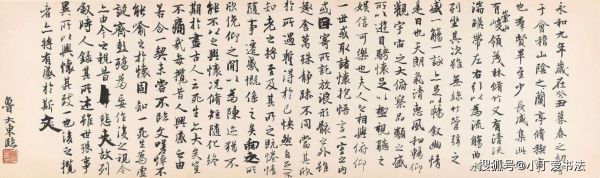 永和九年歲在癸丑暮春之初會
于會稽山陰之蘭亭脩禊事
也羣賢畢至少長咸集此地
有崇山峻領茂林脩竹又有清流激
湍映帶左右引以為流觴曲水
列坐其次雖無絲竹管弦之
盛一觴一詠亦足以暢敘幽情
是日也天朗氣清惠風和暢仰
觀宇宙之大俯察品類之盛
所以遊目騁懷足以極視聽之
娛信可樂也夫人之相與俯仰
一世或取諸懷抱悟言一室之內
或因寄所託放浪形骸之外雖
趣舍萬殊靜躁不同當其欣
於所遇蹔得於己怏然自足不
知老之將至及其所之既惓情
隨事遷感慨係之矣向之所
欣俛仰之間以為陳迹猶不
能不以之興懷況脩短隨化終
期於盡古人云死生亦大矣豈
不痛哉每攬昔人興感之由
若合一契未嘗不臨文嗟悼不
能喻之於懷固知一死生為虛
誕齊彭殤為妄作後之視今
亦由今之視昔悲夫故列
敘時人錄其所述雖世殊事
異所以興懷其致一也後之攬
者亦將有感於斯文
魯大東臨
搜狐号@小丁爱书法